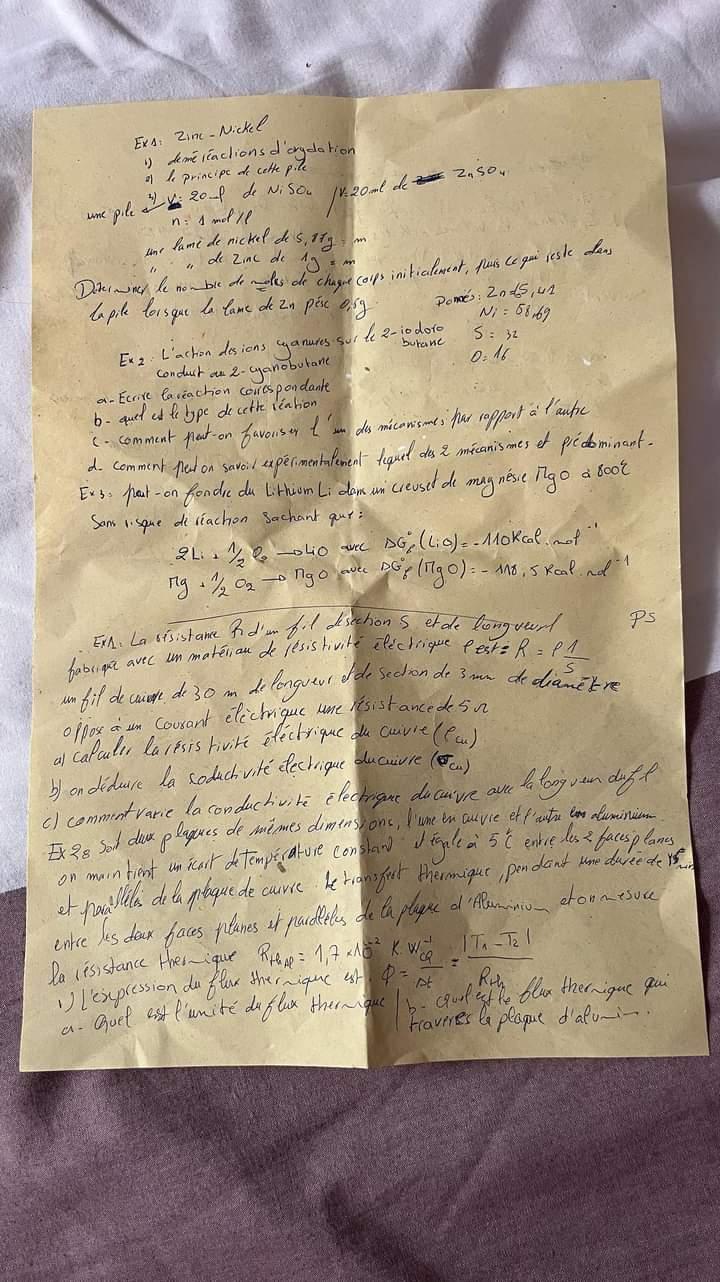 Ex1: Zinc-Nickel
1) demi réactions d'oxydation
2) le principe de cette pile
3) V= 20ml de NiSO4 / V=20ml de ZnSO4
une pile
n = 1 mol/l
une lame de nickel de 5,87g = m
" " de zinc de 1g = m
Déterminer le nombre de moles de chaque corps initialement, puis ce qui reste dans
la pile lorsque la lame de Zn pèse 0,5g.
Donnés: Zn 65,41
Ni = 58,69
S = 32
O = 16
Ex2: L'action des ions cyanures sur le 2-iodoro
butane
conduit au 2-cyanobutane
a- Ecrire la réaction correspondante
b- quel est le type de cette réation
c- comment peut-on favoriser l'un des mécanismes par rapport à l'autre
d- comment peut on savoir expérimentalement lequel des 2 mécanismes et prédominant.
Ex3: peut-on fondre du Lithium Li dans un creuset de magnésie MgO à 800°C
Sans risque de réaction sachant que:
2Li + 1/2 O2 → LiO avec ΔG°f (LiO) = -110 Kcal.mol-1
Mg + 1/2 O2 → MgO avec ΔG°f (MgO) = -118,5 Kcal.mol-1
PS
Ex1: La résistance R d'un fil de section S et de longueur l
fabriqué avec un matériau de résistivité électrique ρ est: R = ρ l/S
un fil de cuivre de 30 m de longueur et de section de 3 mm de diamètre
oppose à un courant électrique une résistance de 5Ω
a) calculer la résistivité électrique du cuivre (ρcu)
b) on déduire la soductivité électrique du cuivre (σcu)
c) comment varie la conductivité électrique du cuivre avec la longueur du fil
Ex2: Soit deux plaques de mêmes dimensions, l'une en cuivre et l'autre en aluminium.
on maintient un écart de température constant et égale à 5°C entre les 2 faces planes
et parallèles de la plaque de cuivre. le transfert thermique, pendant une durée de 15 min
entre les deux faces planes et parallèles de la plaque d'Aluminium et on mesure
la résistance thermique Rth Al = 1,7 × 10-2 K.W-1
1) L'expression du flux thermique est Φ = Q/Δt = |T1 - T2| / Rth
a- Quel est l'unité du flux thermique / b- Quel est le flux thermique qui
traverse la plaque d'alumin.